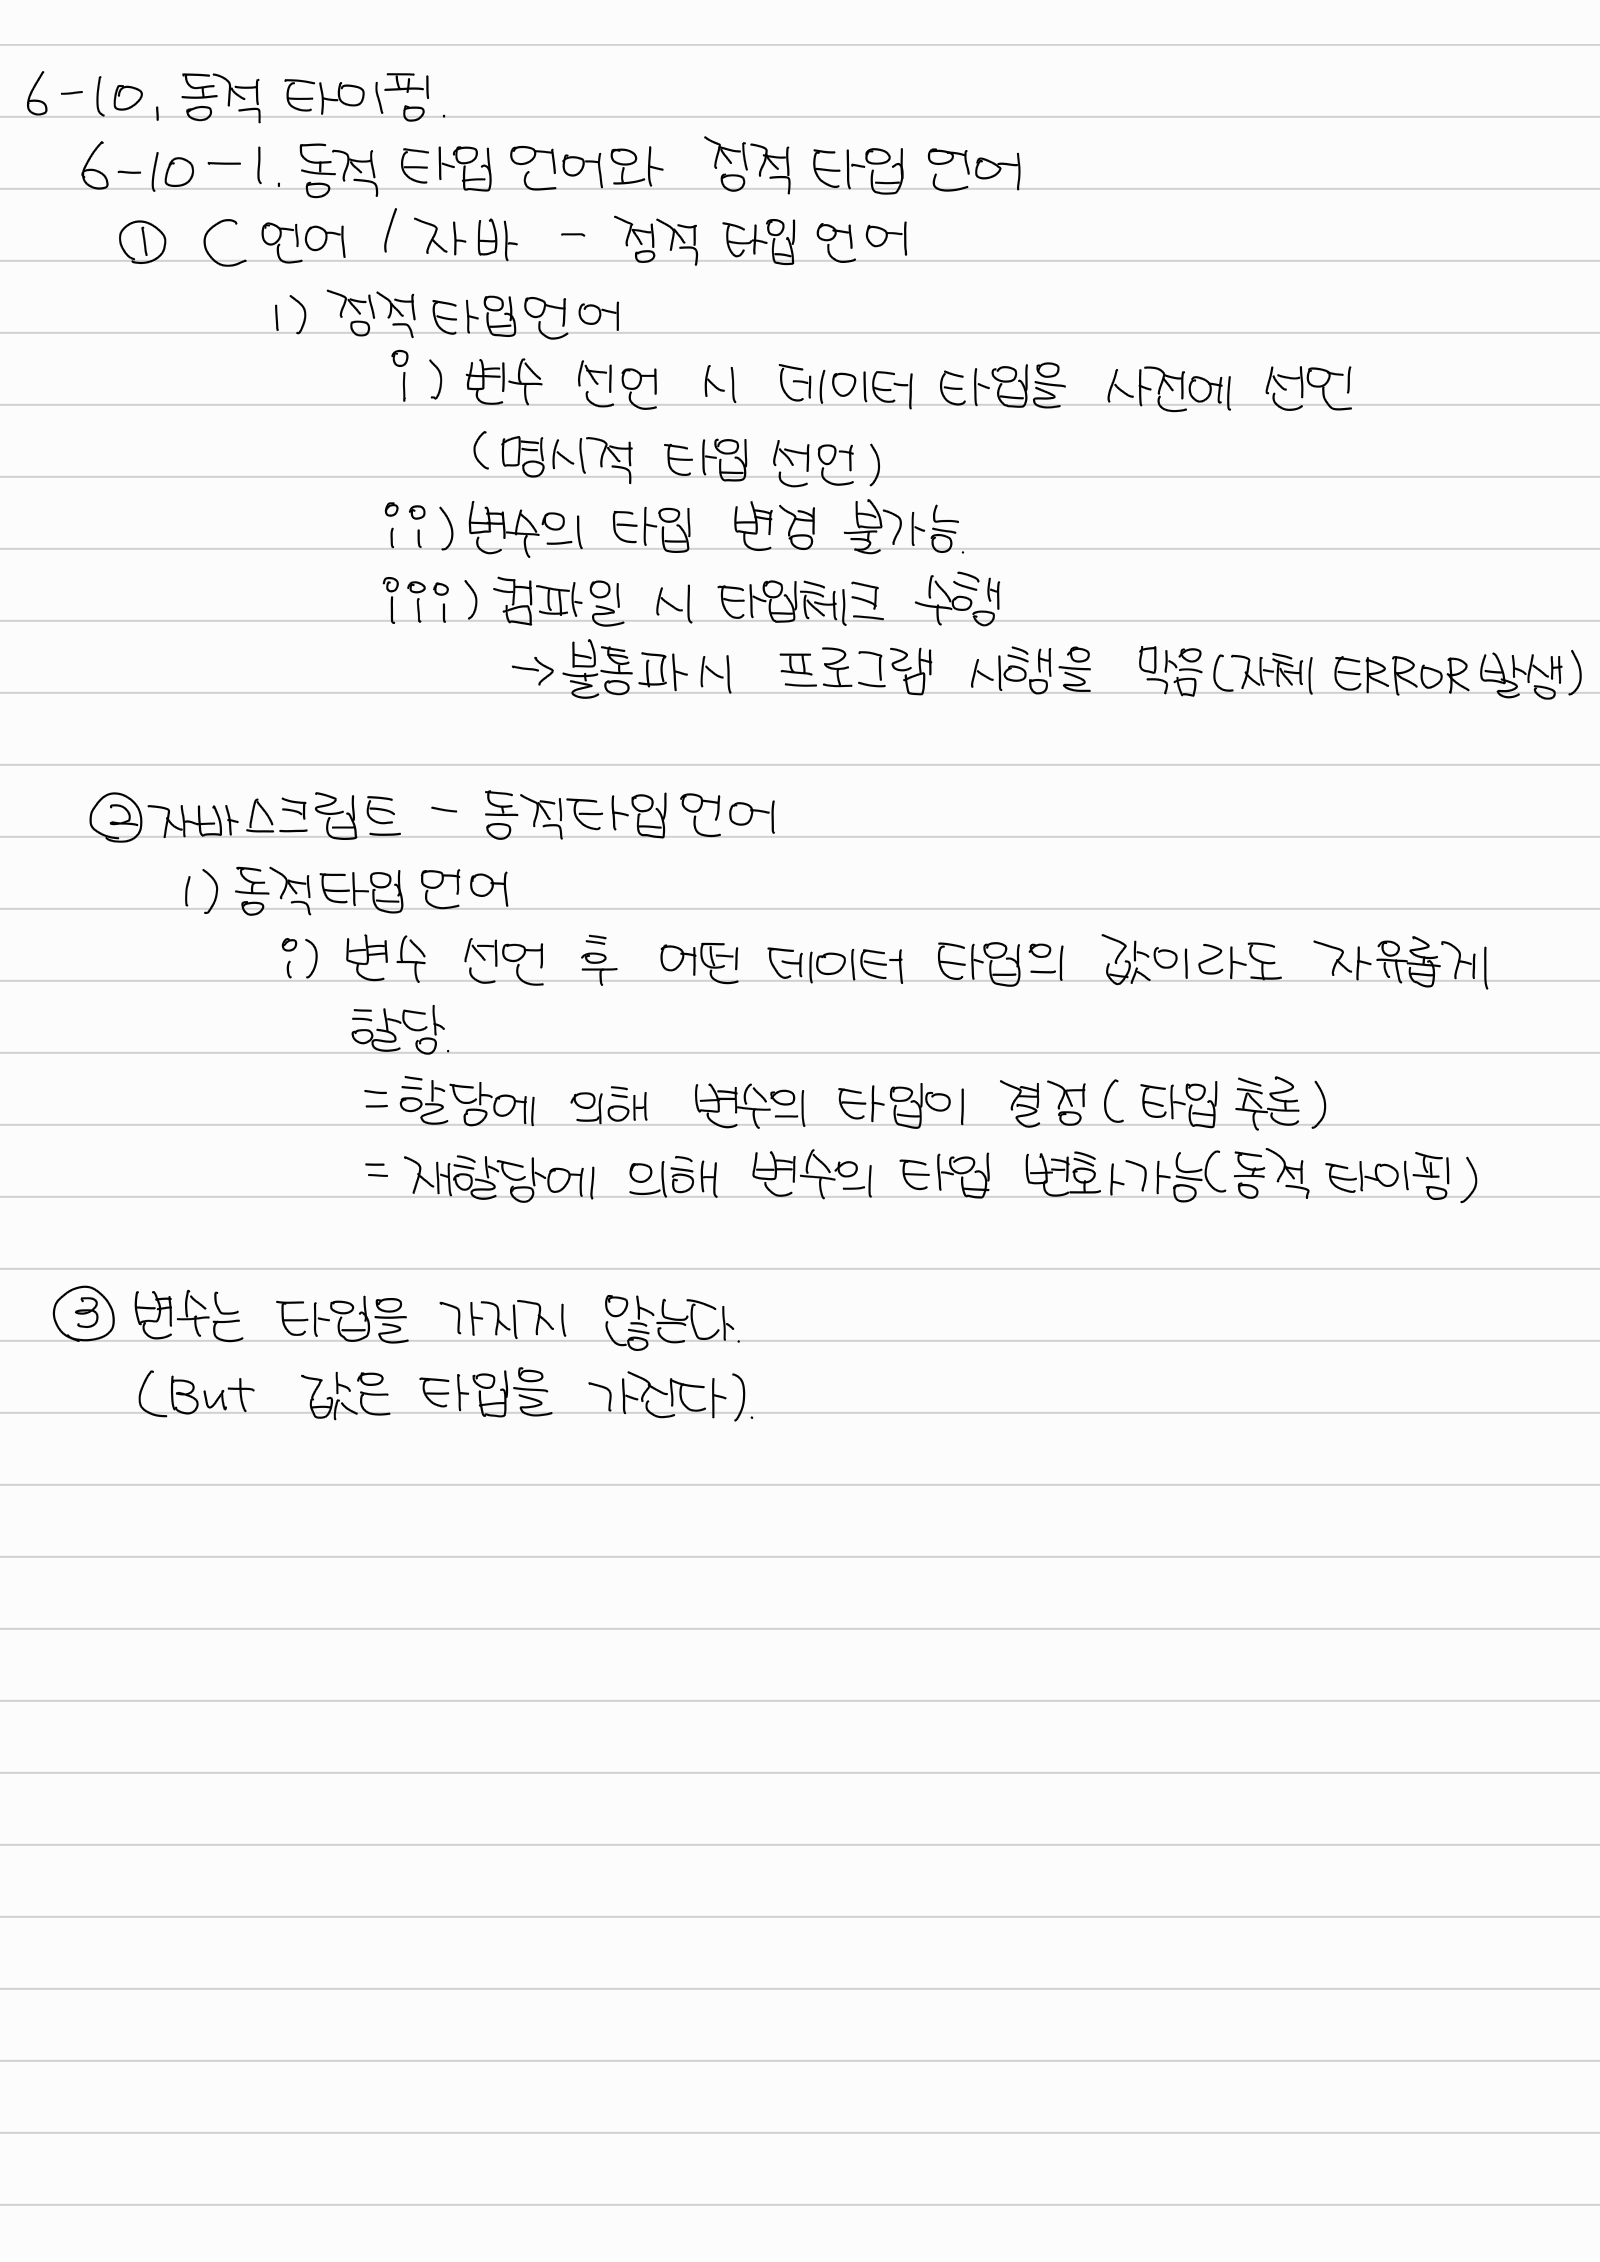 6-10. 동적 타이핑.
6-10-1. 동적 타입 언어와 정적 타입 언어
① C 언어 / 자바 - 정적 타입 언어
1) 정적 타입 언어
i) 변수 선언 시 데이터 타입을 사전에 선언
(명시적 타입 선언)
ii) 변수의 타입 변경 불가능.
iii) 컴파일 시 타입체크 수행
→ 불통과시 프로그램 시행을 막음(자체 ERROR 발생)
② 자바스크립트 - 동적타입 언어
1) 동적타입 언어
i) 변수 선언 후 어떤 데이터 타입의 값이라도 자유롭게
할당.
= 할당에 의해 변수의 타입이 결정(타입 추론)
= 재할당에 의해 변수의 타입 변화가능(동적 타이핑)
③ 변수는 타입을 가지지 않는다.
(But 값은 타입을 가진다).